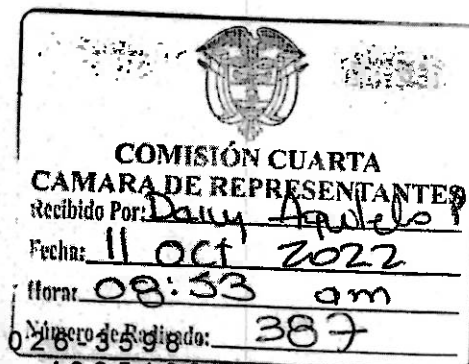 COMISIÓN CUARTA
CAMARA DE REPRESENTANTES
Recibido Por:
Fecha: 11 OCT 2022
Hora: 08:53 am
Número de Radicado: 387
026 3598